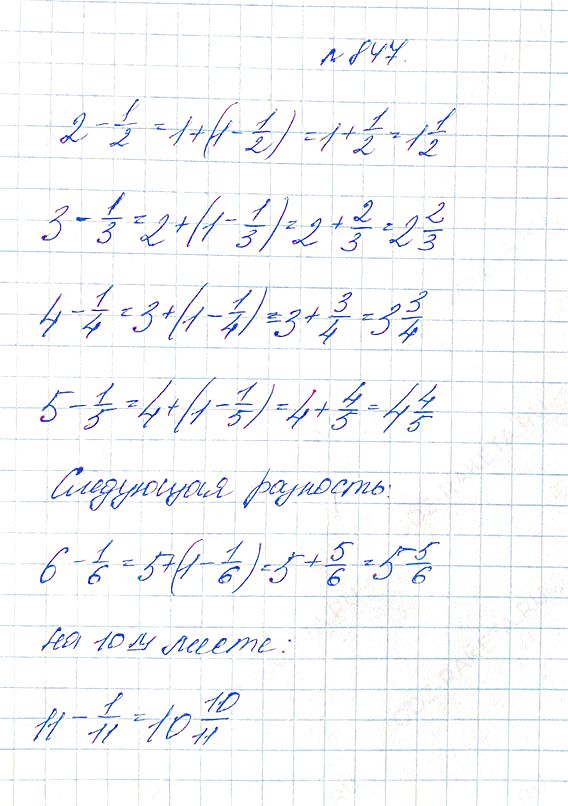 № 847.
2 - 1/2 = 1 + (1 - 1/2) = 1 + 1/2 = 1 1/2
3 - 1/3 = 2 + (1 - 1/3) = 2 + 2/3 = 2 2/3
4 - 1/4 = 3 + (1 - 1/4) = 3 + 3/4 = 3 3/4
5 - 1/5 = 4 + (1 - 1/5) = 4 + 4/5 = 4 4/5
Следующая разность:
6 - 1/6 = 5 + (1 - 1/6) = 5 + 5/6 = 5 5/6
на 10м месте:
11 - 1/11 = 10 10/11